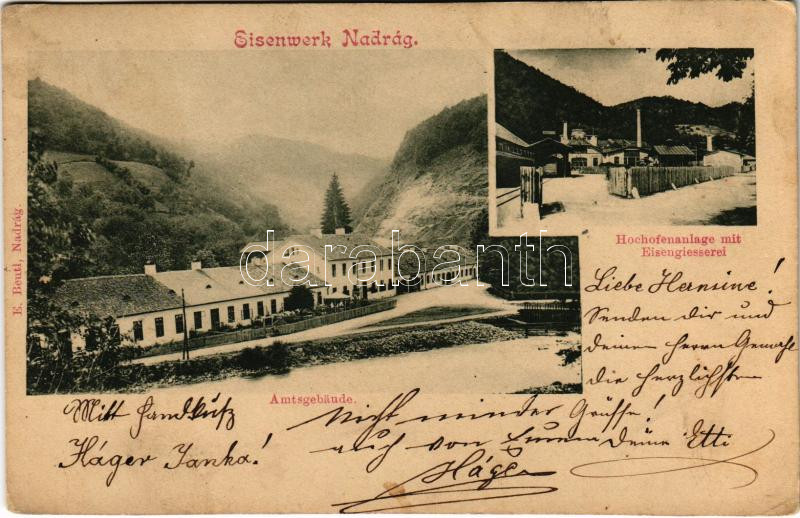 Eisenwerk Nadrág.
E. Beutl, Nadrág.
Hochofenanlage mit
Eisengiesserei
Amtsgebäude.
darabanth
Liebe Hermine!
Senden dir und
deinen Herrn Gemahl
die herzlichsten
Grüsse!
Deine Etti
Nicht minder
auch von
Häger
Mitt Handkuß
Häger Janka!